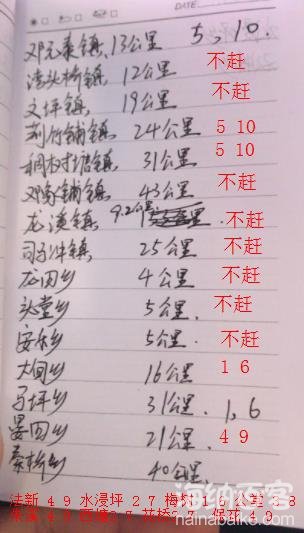 DATE
邓元泰镇 13公里 5、10.
湾头桥镇 12公里 不赶
文坪镇 19公里 不赶
荆竹铺镇 24公里 5 10
稠树塘镇 31公里 5 10
邓家铺镇 43公里 不赶
龙溪镇 9.2公里 不赶
司马冲镇 25公里 不赶
龙田乡 4公里 不赶
头堂乡 5公里 不赶
安乐乡 5公里 不赶
大甸乡 16公里 1 6
马坪乡 31公里. 1,6
晏田乡 21公里 4 9
秦桥乡 40公里
法新 4 9 水浸坪 2 7
海纳百客